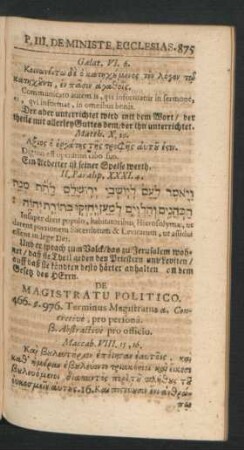 P. III. DE MINISTE, ECCLESIAS. 875
Galat. VI. 6.
Κοινωνείτω δὲ ὁ κατηχούμενος τὸν λόγον τῷ
κατηχοῦντι, ἐν πᾶσιν ἀγαθοῖς.
Communicato autem is, qui informatur in sermone,
qui informat, in omnibus bonis.
Der aber unterrichtet wird mit dem Wort/ der
theile mit allerley Guttes dem/ der ihn unterrichtet.
Matth. X. 10.
Ἄξιος ὁ ἐργάτης τῆς τροφῆς αὐτοῦ ἐστι.
Dignus est operarius cibo suo.
Ein Arbeiter ist seiner Speise werth.
II. Paralip. XXXI. 4.
ויאמר לעם ליושבי ירושלם לתת מנת
הכהנים והלוים למען יחזקו בתורת יהוה
Insuper dixit populo, habitatoribus Hierosolymæ, ut
darent portionem Sacerdotum & Levitarum, ut
essent in lege Dei.
Und er sprach zum Volck das zu Jerusalem wohne/
daß sie Theil geben den Priestern und Leviten/
auff daß sie kündten desto härter anhalten an dem
Gesetz des HErrn.
DE
MAGISTRATU POLITICO.
466. 2. 976. Terminus Magistratus α.
pro personâ.
β. Abstractivè pro officio.
Maccab. VIII. 15, 16.
Καὶ βουλευτήριον ἐποίησαν ἑαυτοῖς, καὶ
καθ' ἡμέραν ἐβουλεύοντο τριακόσιοι καὶ εἴκοσι
βουλευόμενοι διαπαντὸς περὶ τοῦ πλήθους τοῦ
16. Καὶ πιστεύουσιν ἑνὶ ἀνθρώ-